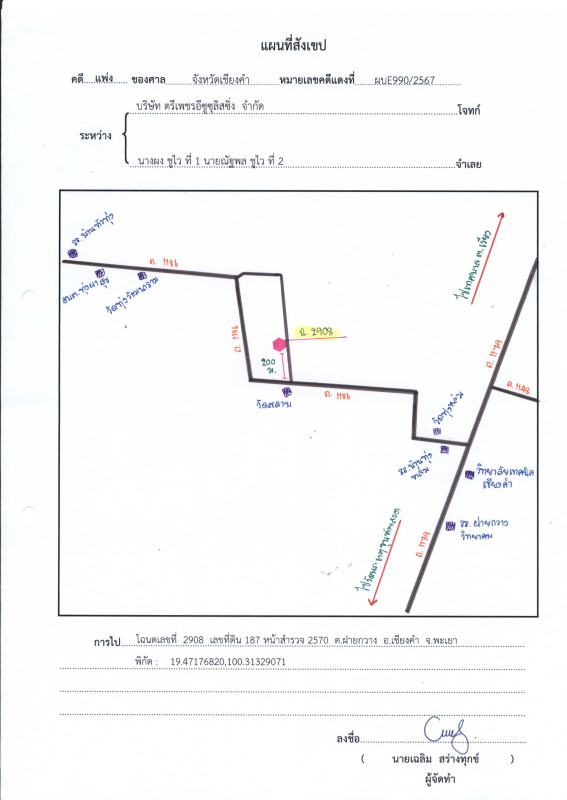 แผนที่สังเขป
คดี แพ่ง ของศาล จังหวัดเชียงคำ หมายเลขคดีแดงที่ ผบE990/2567
บริษัท ตรีเพชรอีซูซุลิสซิ่ง จำกัด โจทก์
ระหว่าง
นางผง ชูไว ที่ 1 นายณัฐพล ชูไว ที่ 2 จำเลย
ถ. 1186
วัดทุ่งรัตนาราม
ถ. 1186
ฉ. 2908
200
ม.
วัดสถาน
ถ. 1186
ถ. 1179
ถ. 1148
วัดทุ่งหล่ม
รร.บ้านทุ่ง
หล่ม
วิทยาลัยเทคนิค
เชียงคำ
รร. ฝายกวาง
วิทยาคม
ถ. 1179
การไป โฉนดเลขที่ 2908 เลขที่ดิน 187 หน้าสำรวจ 2570 ต.ฝายกวาง อ.เชียงคำ จ.พะเยา
พิกัด : 19.47176820,100.31329071
ลงชื่อ
( นายเฉลิม สร่างทุกข์ )
ผู้จัดทำ